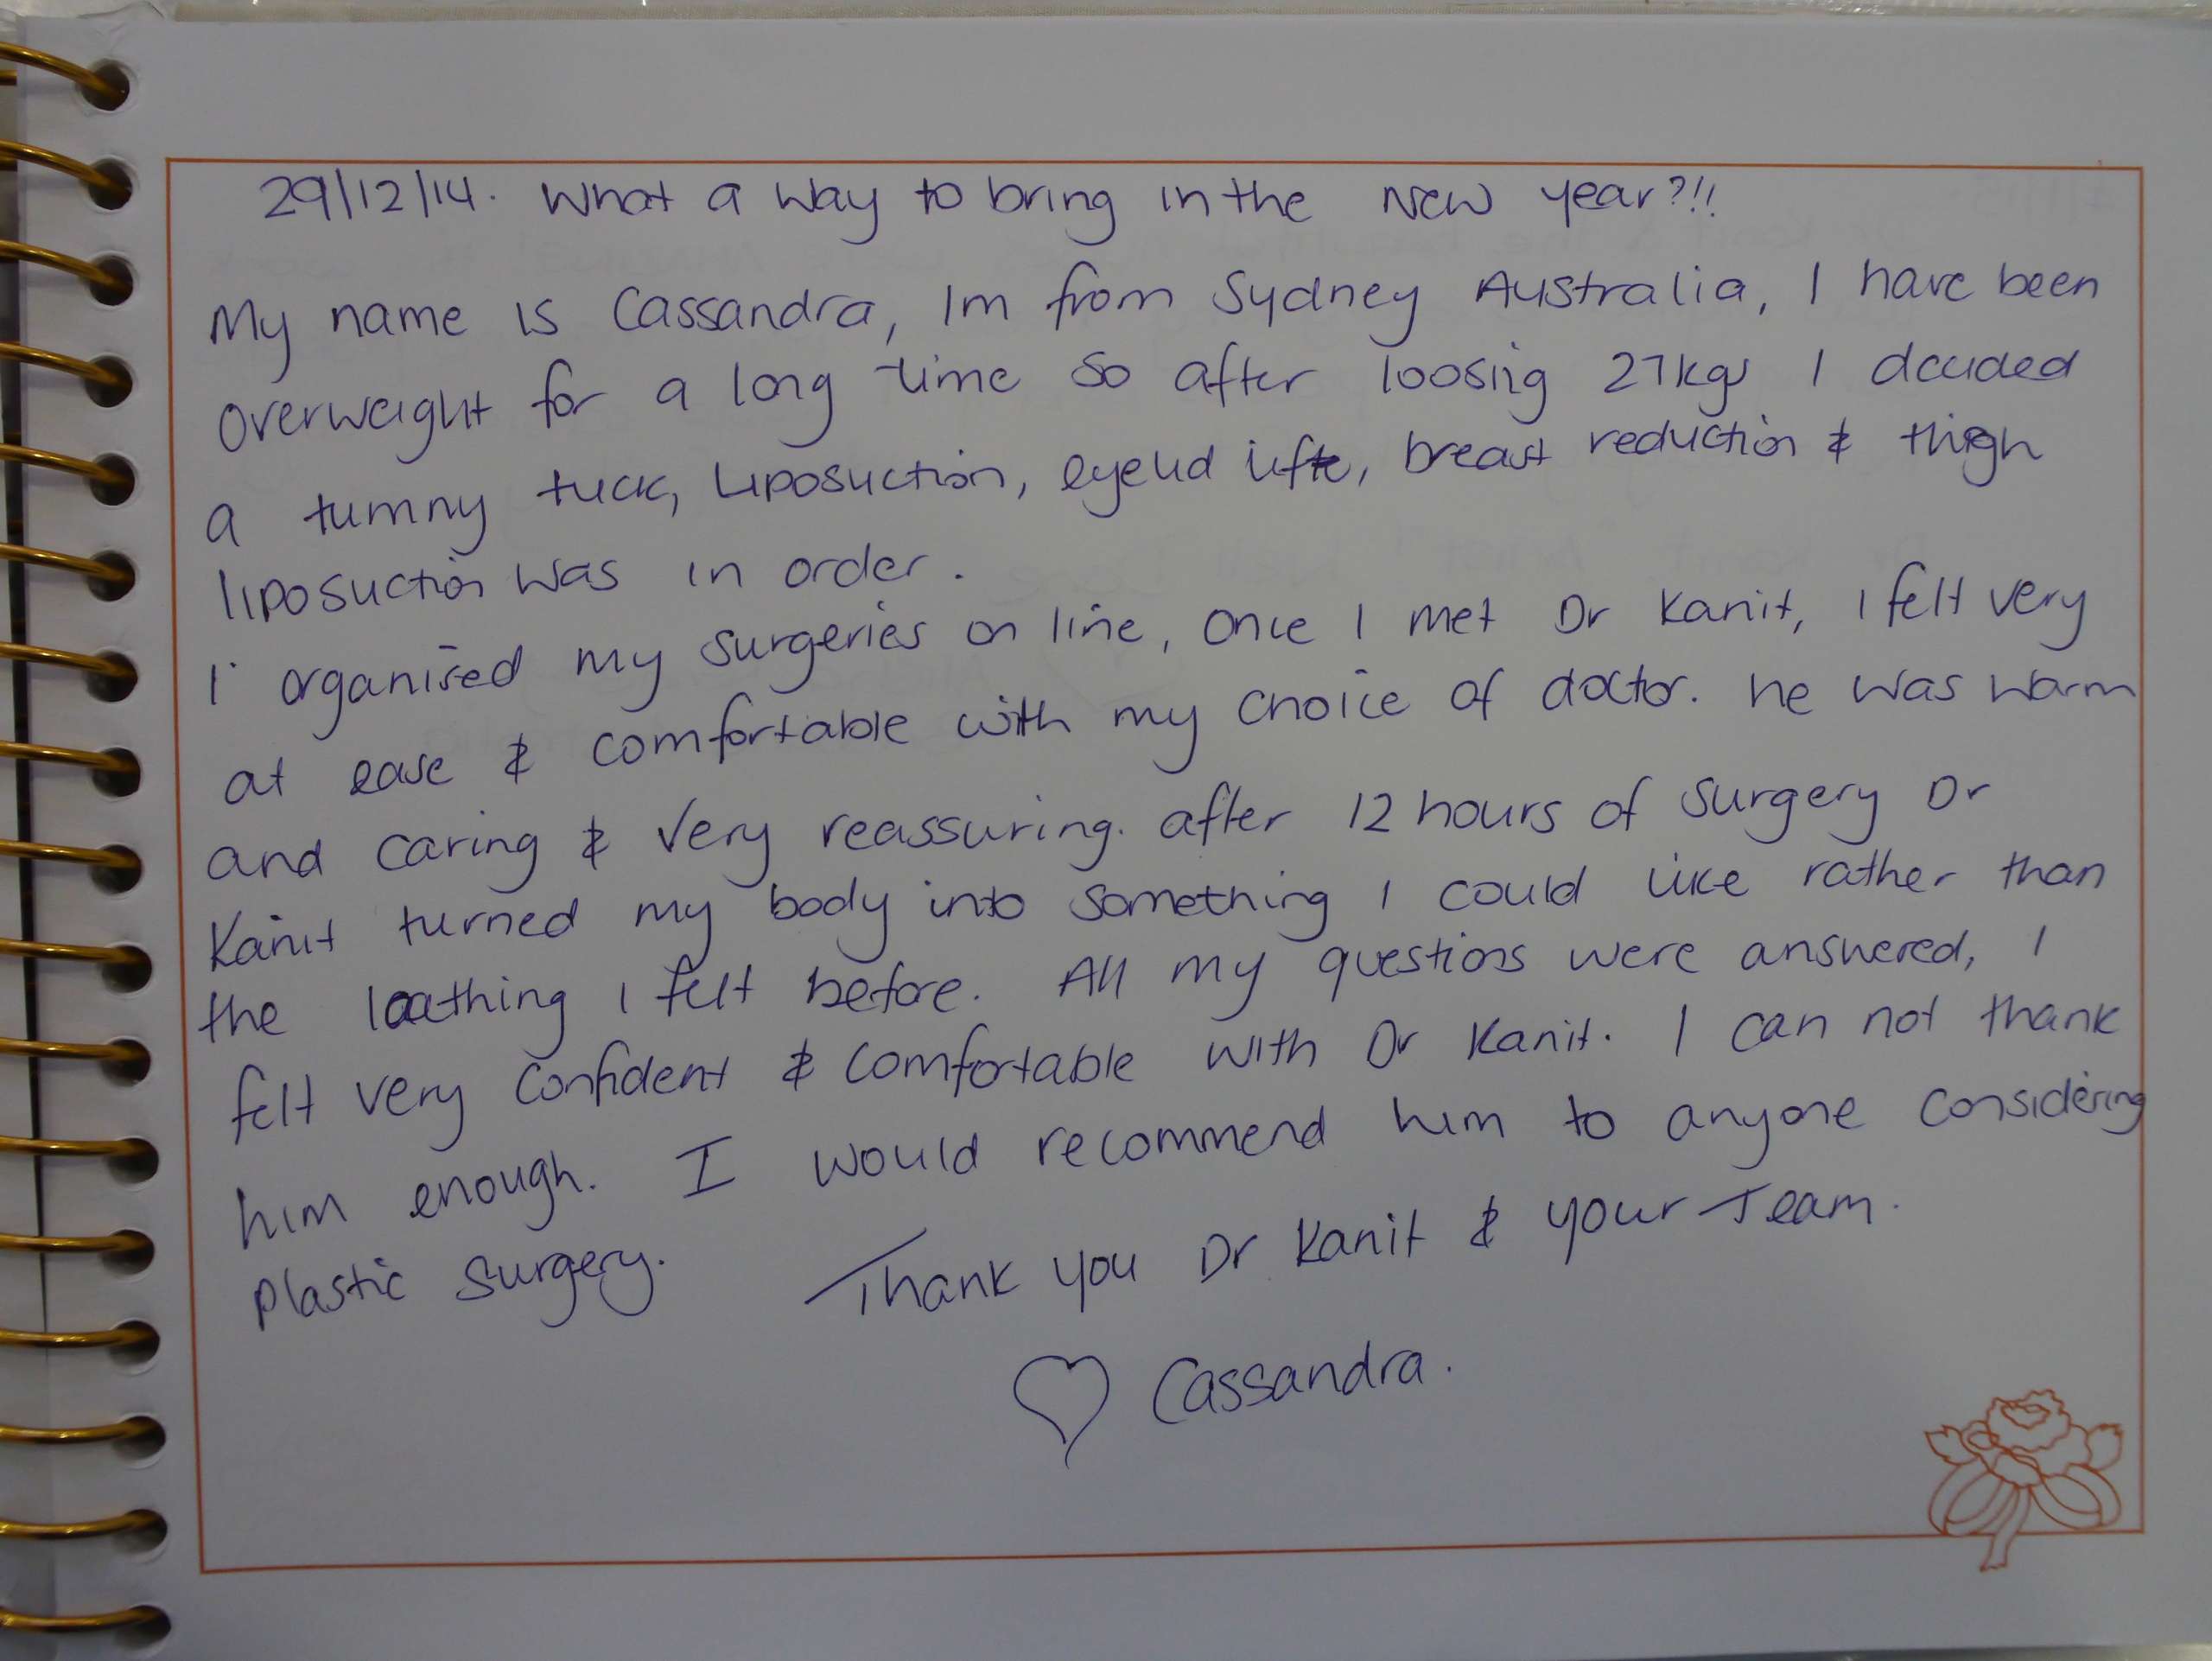 29/12/14. What a way to bring in the New year?!!
My name is Cassandra, Im from Sydney Australia, I have been
overweight for a long time so after loosing 27kgs I decided
a tummy tuck, Liposuction, eyelid lifte, breast reduction & thigh
liposuction was in order.
I organised my surgeries on line, once I met Dr Kanit, I felt very
at ease & comfortable with my choice of doctor. he was warm
and caring & very reassuring. after 12 hours of surgery Dr
Kanit turned my body into something I could like rather than
the loathing I felt before. All my questions were answered, I
felt very confident & comfortable with Dr Kanit. I can not thank
him enough. I would recommend him to anyone considering
plastic surgery. Thank you Dr Kanit & your Team.
♡ Cassandra.